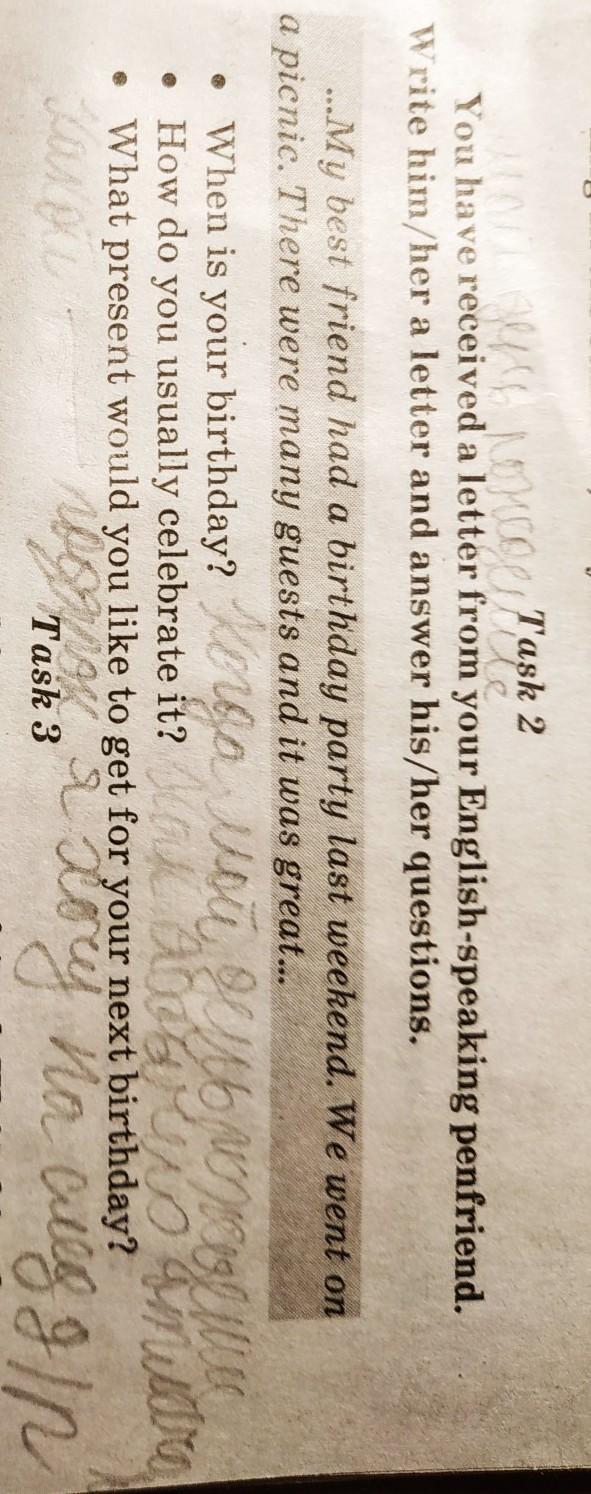 Task 2
You have received a letter from your English-speaking penfriend.
Write him/her a letter and answer his/her questions.
...My best friend had a birthday party last weekend. We went on
a picnic. There were many guests and it was great...
• When is your birthday? Когда мой день рождения
• How do you usually celebrate it? Как обычно
• What present would you like to get for your next birthday?
подарок я хочу на след д/р
Task 3